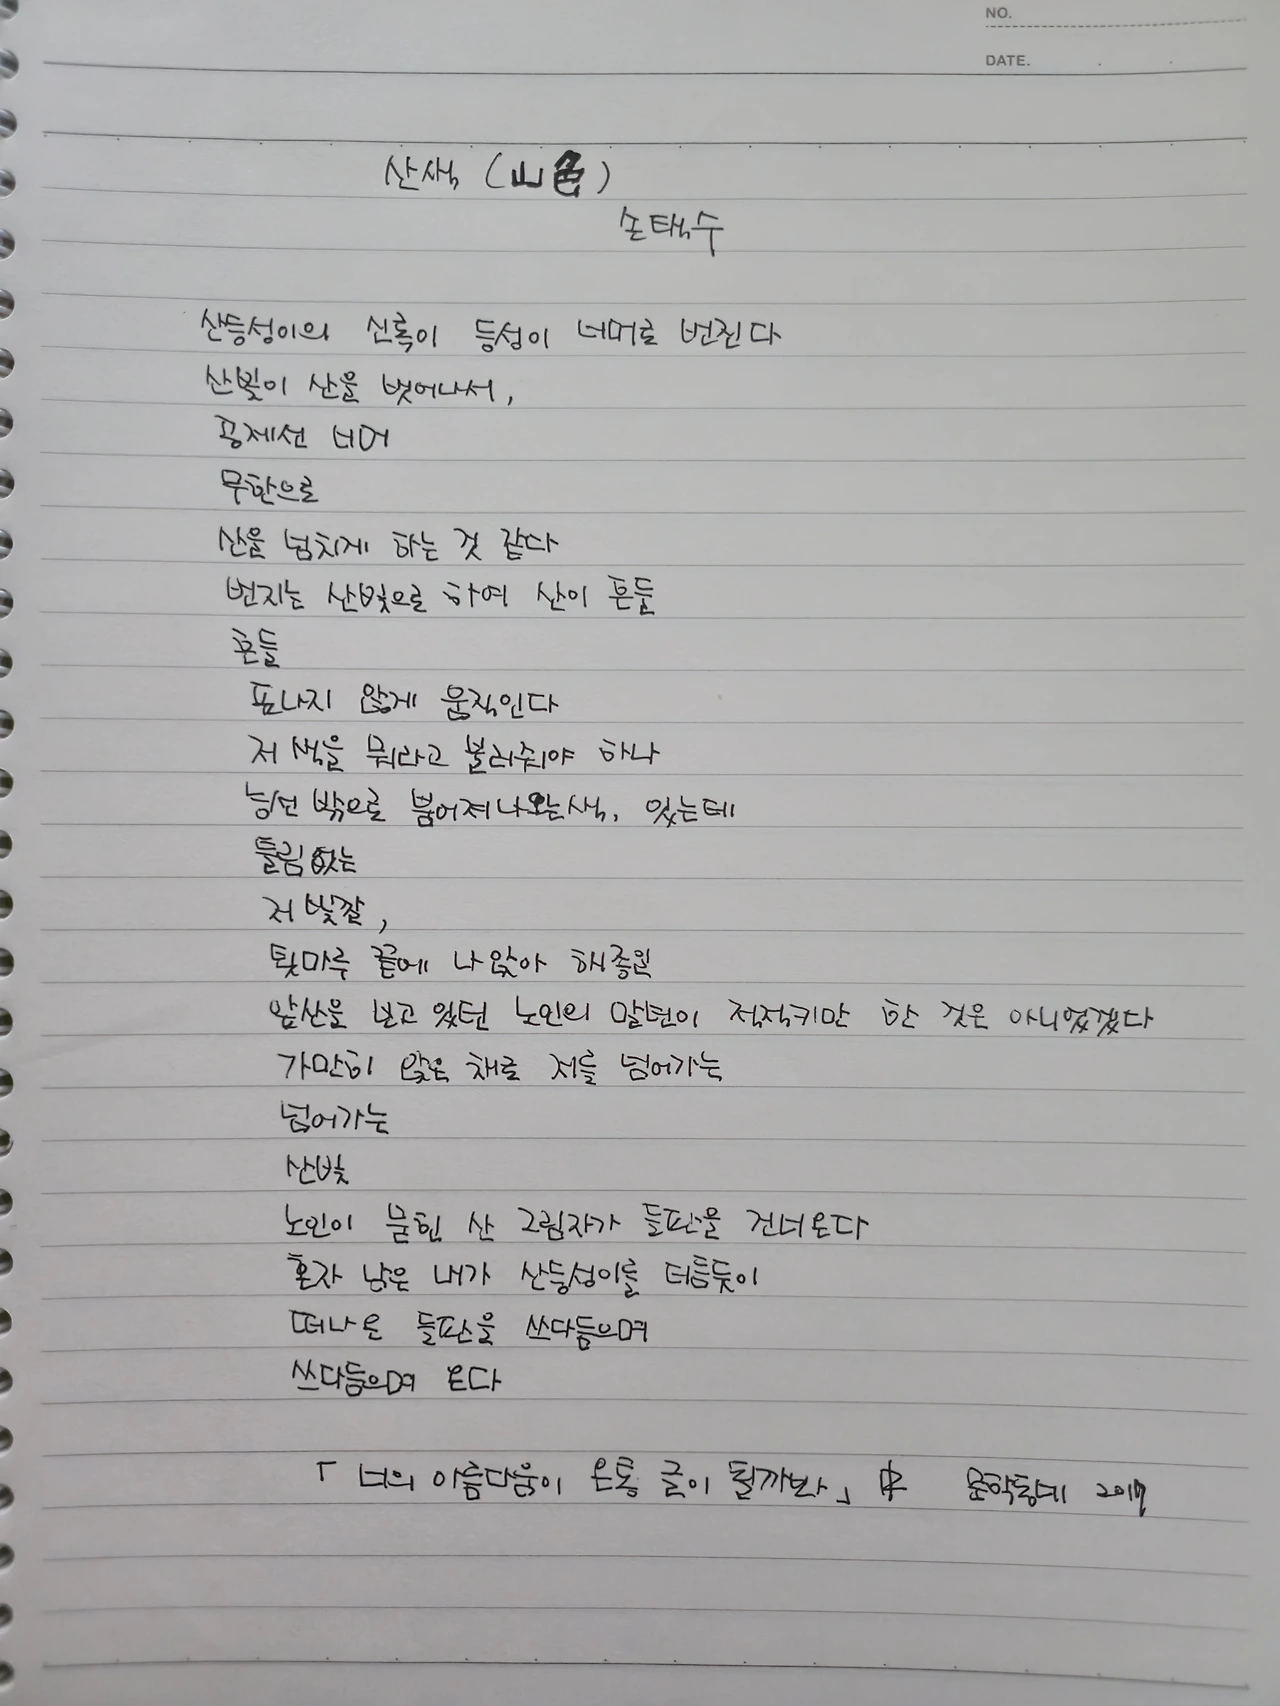 NO.
DATE.
산색 (山色)
손택수
산등성이의 신록이 등성이 너머로 번진다
산빛이 산을 벗어나서,
공제선 너머
무한으로
산을 넘치게 하는 것 같다
번지는 산빛으로 하여 산이 흔들
흔들
표나지 않게 움직인다
저 색을 뭐라고 불러줘야 하나
능선 밖으로 뿜어져나오는 색, 있는데
틀림없는
저 빛깔,
툇마루 끝에 나앉아 해종일
앞산을 보고 있던 노인의 말년이 적적키만 한 것은 아니었겠다
가만히 앉은 채로 저를 넘어가는
넘어가는
산빛
노인이 묻힌 산 그림자가 들판을 건너온다
혼자 남은 내가 산등성이를 더듬듯이
떠나온 들판을 쓰다듬으며
쓰다듬으며 온다
「너의 아름다움이 온통 글이 될까봐」 中 문학동네 2017